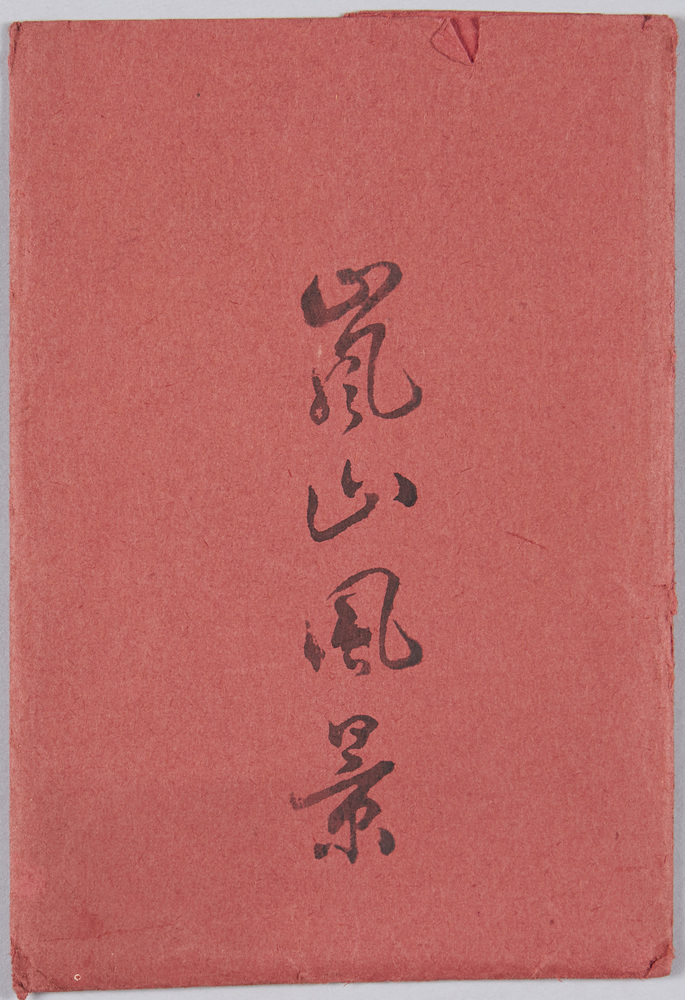 嵐山風景